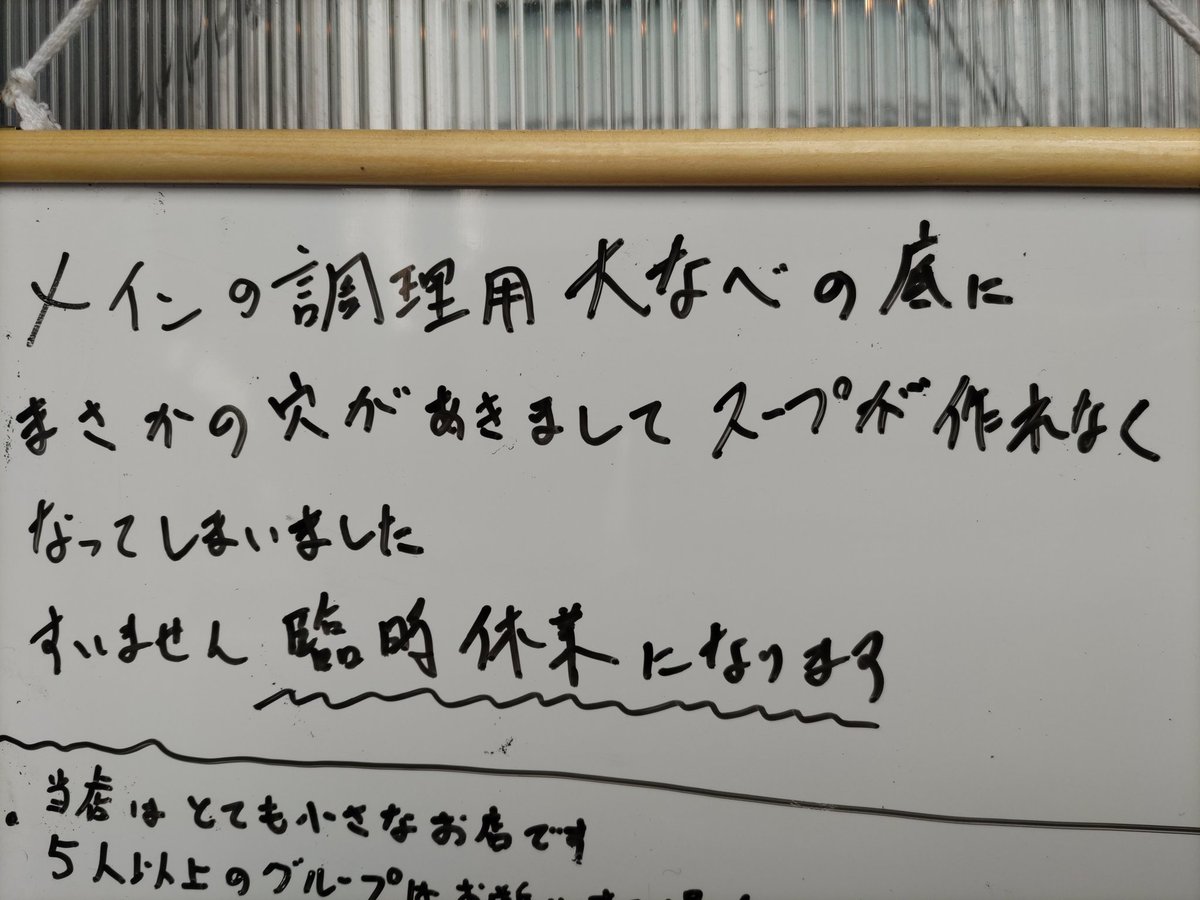 メインの調理用大なべの底に
まさかの穴があきましてスープが作れなく
なってしまいました
すいません臨時休業になります
・当店はとても小さなお店です
5人以上のグループはお断り